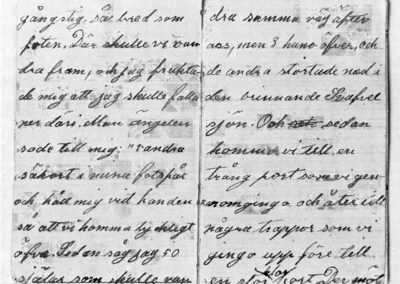 gångstig, så bred som
foten. Där skulle vi van
dra fram, och jag frukta
de mig att jag skulle falla
ner däri. Men ängelen
sade till mig: "vandra
säkert i mina fotspår
och håll mig vid handen
så att vi komma lyckligt
öfver. Sedan såg jag 50
själar som skulle van
dra samma väg efter
oss, men 3 huno öfver, och
de andra störtade ned i
den brinnande Svafvel
sjön. Och sedan
kommo vi till en
trång port som vi gen
nomgingo och åter till
några trappor som vi
gingo upp före till
en stor port. Der möt